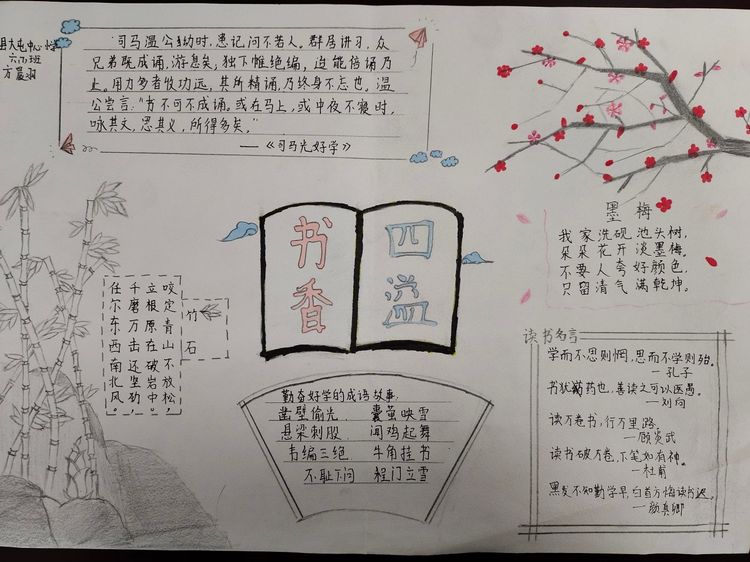 县大屯中心小学
六(5)班
司马温公幼时,患记问不若人。群居讲习,众
兄弟既成诵,游息矣,独下帷绝编,迨能倍诵乃
止。用力多者收功远,其所精诵,乃终身不忘也。温
公尝言:“书不可不成诵。或在马上,或中夜不寝时,
咏其文,思其义,所得多矣。”
——《司马光好学》
墨梅
我家洗砚池头树,
朵朵花开淡墨梅。
不要人夸好颜色,
只留清气满乾坤。
书香
四溢
竹石
咬定青山不放松,
立根原在破岩中。
千磨万击还坚劲,
任尔东西南北风。
勤奋好学的成语故事:
凿壁偷光 囊萤映雪
悬梁刺股 闻鸡起舞
韦编三绝 牛角挂书
不耻下问 程门立雪
读书名言
学而不思则惘,思而不学则殆。
—孔子
书犹药也,善读之可以医愚。
—刘向
读万卷书,行万里路。
—顾炎武
读书破万卷,下笔如有神。
—杜甫
黑发不知勤学早,白首方悔读书迟。
—颜真卿